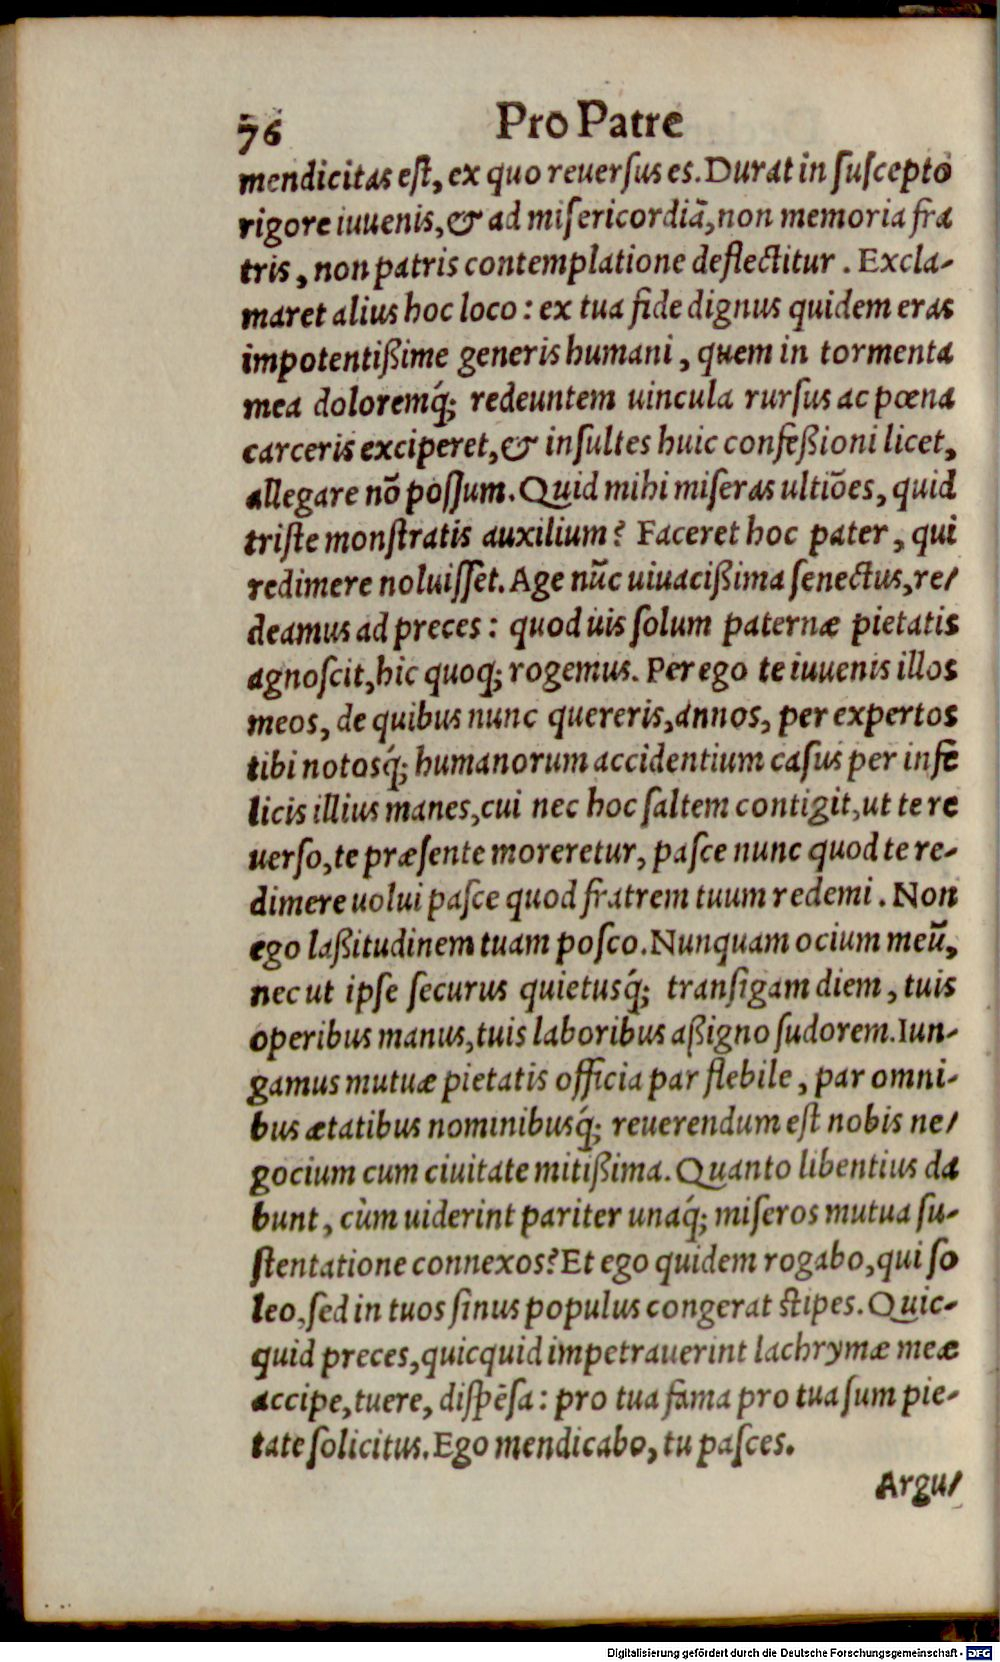 76 Pro Patre
mendicitas est, ex quo reuersus es. Durat in suscepto
rigore iuuenis, & ad misericordiã, non memoria fra
tris, non patris contemplatione deflectitur. Excla-
maret alius hoc loco: ex tua fide dignus quidem eras
impotentißime generis humani, quem in tormenta
mea doloremq́; redeuntem uincula rursus ac pœna
carceris exciperet, & insultes huic confeßioni licet,
allegare nõ possum. Quid mihi miseras ultiões, quid
triste monstratis auxilium? Faceret hoc pater, qui
redimere noluisset. Age nũc uiuacißima senectus, re/
deamus ad preces: quod uis solum paternæ pietatis
agnoscit, hic quoq; rogemus. Per ego te iuuenis illos
meos, de quibus nunc quereris, annos, per expertos
tibi notosq́; humanorum accidentium casus per infe
licis illius manes, cui nec hoc saltem contigit, ut te re
uerso, te præsente moreretur, pasce nunc quod te re-
dimere uolui pasce quod fratrem tuum redemi. Non
ego laßitudinem tuam posco. Nunquam ocium meũ,
nec ut ipse securus quietusq́; transigam diem, tuis
operibus manus, tuis laboribus aßigno sudorem. Iun-
gamus mutuæ pietatis officia par flebile, par omni-
bus ætatibus nominibusq́; reuerendum est nobis ne/
gocium cum ciuitate mitißima. Quanto libentius da
bunt, cùm uiderint pariter unaq́; miseros mutua su-
stentatione connexos? Et ego quidem rogabo, qui so
leo, sed in tuos sinus populus congerat stipes. Quic-
quid preces, quicquid impetrauerint lachrymæ meæ
accipe, tuere, dispẽsa: pro tua fama pro tua sum pie-
tate solicitus. Ego mendicabo, tu pasces.
Argu/
Digitalisierung gefördert durch die Deutsche Forschungsgemeinschaft - DFG